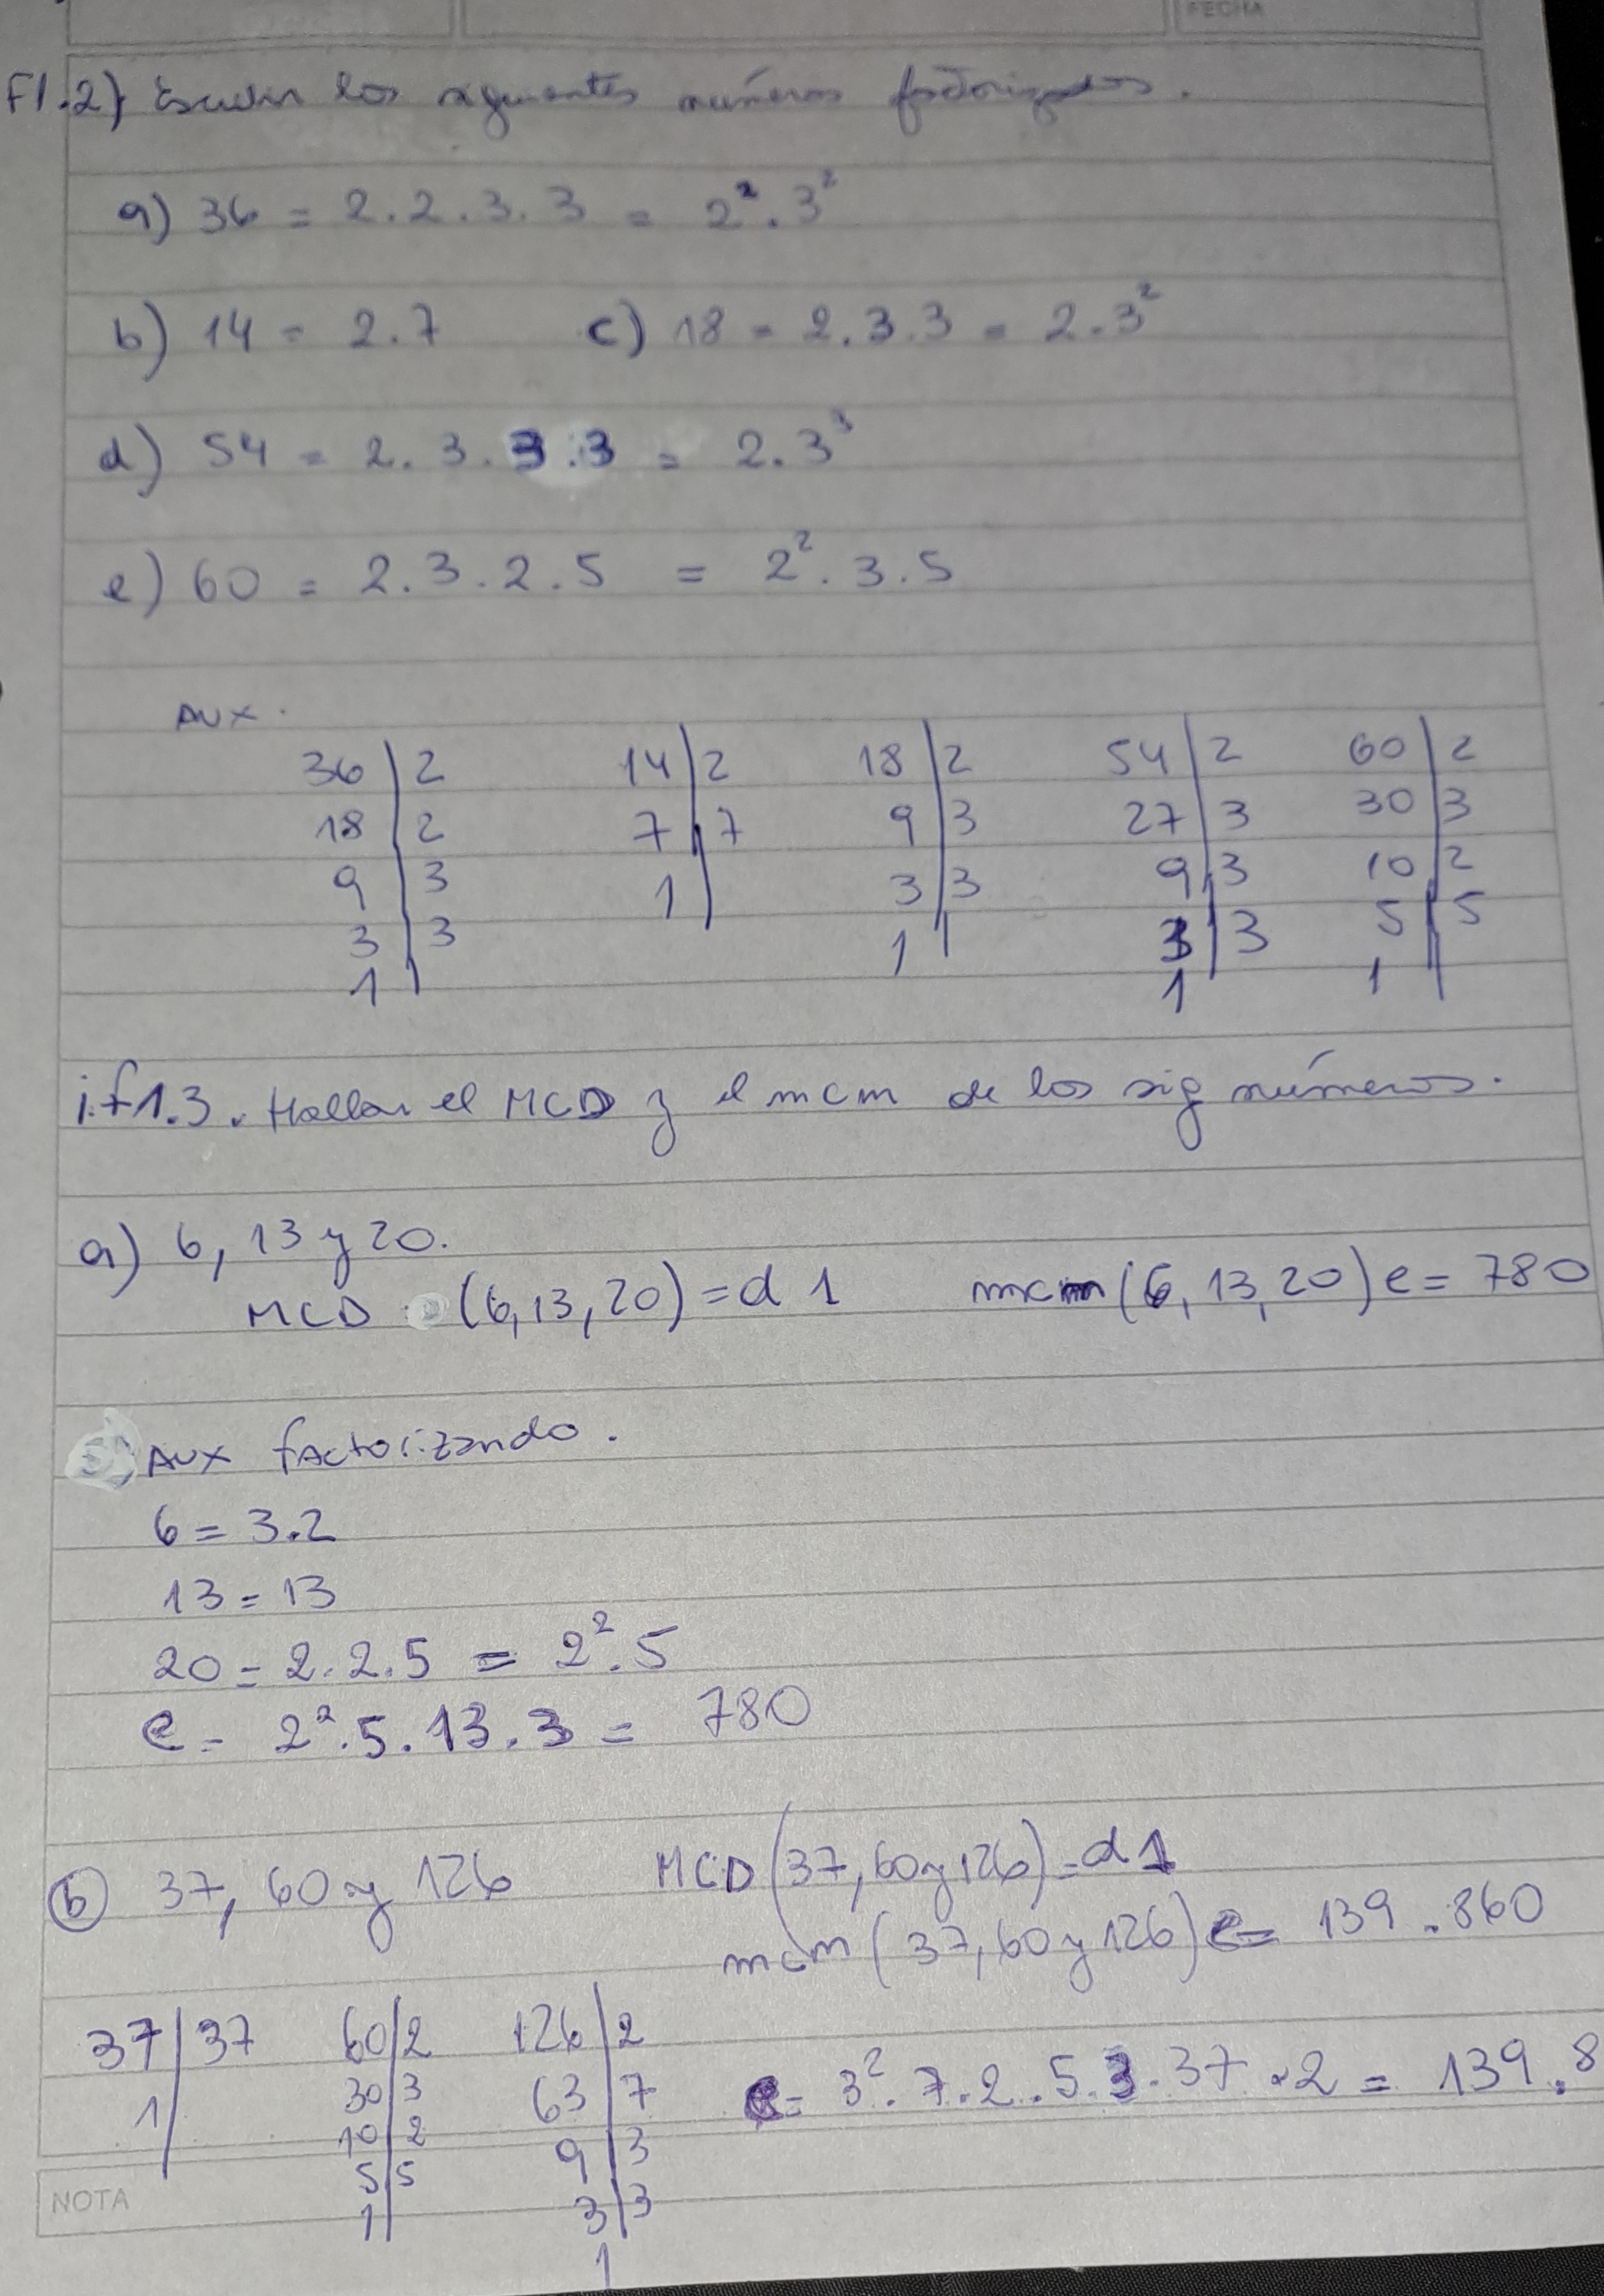 FECHA
F1.2) Escribir los siguientes números factorizados.
a) 36 = 2.2.3.3 = 2².3²
b) 14 = 2.7 c) 18 = 2.3.3 = 2.3²
d) 54 = 2.3.3.3 = 2.3³
e) 60 = 2.3.2.5 = 2².3.5
AUX.
36 | 2 14 | 2 18 | 2 54 | 2 60 | 2
18 | 2 7 | 7 9 | 3 27 | 3 30 | 3
9 | 3 1 | 3 | 3 9 | 3 10 | 2
3 | 3 1 | 3 | 3 5 | 5
1 | 1 1 |
i.f1.3. Hallar el MCD y el mcm de los sig números.
a) 6, 13 y 20.
MCD (6,13,20) = d 1 mcm (6,13,20) e = 780
AUX factorizando.
6 = 3.2
13 = 13
20 = 2.2.5 = 2².5
e = 2².5.13.3 = 780
b) 37, 60 y 126 MCD (37, 60 y 126) = d 1
mcm (37, 60 y 126) e = 139.860
37 | 37 60 | 2 126 | 2
1 | 30 | 3 63 | 7 e = 3².7.2..5.3.37.2 = 139.8
10 | 2 9 | 3
5 | 5 3 | 3
1 | 1
NOTA